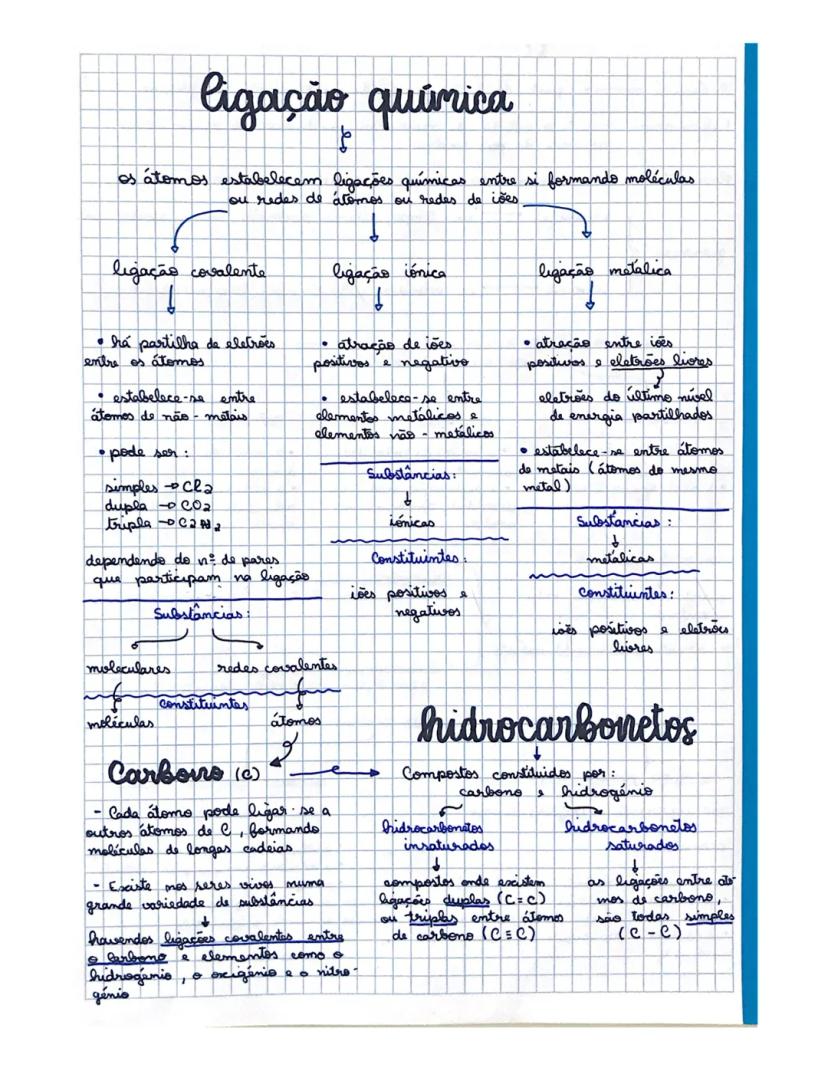 ligação química
os átomos estabelecem ligações químicas entre si formando moléculas
ou redes de átomos ou redes de iões
ligação covalente
• há partilha de eletrões
entre os átomos
• estabelece-se entre
átomos de não-metais
• pode ser:
simples → Cl2
dupla → CO2
tripla → C2H2
dependendo do nº de pares
que participam na ligação
Substâncias:
moleculares redes covalentes
Constituintes
moléculas átomos
ligação iónica
• atração de iões
positivos e negativo
• estabelece-se entre
elementos metálicos e
elementos não-metálicos
Substâncias:
iónicas
Constituintes:
iões positivos e
negativos
ligação metálica
• atração entre iões
positivos e eletrões livres
eletrões do último nível
de energia partilhados
• estabelece-se entre átomos
de metais (átomos do mesmo
metal)
Substâncias:
metálicas
Constituintes:
iões positivos e eletrões
livres
Carbono (C)
- Cada átomo pode ligar-se a
outros átomos de C, formando
moléculas de longas cadeias
- Existe nos seres vivos numa
grande variedade de substâncias
havendos ligações covalentes entre
o Carbono e elementos como o
hidrogénio, o oxigénio e o nitro-
génio
hidrocarbonetos
Compostos constituidos por:
carbono e hidrogénio
hidrocarbonetos
insaturados
compostos onde existem
ligações duplas (C=C)
ou triplas entre átomos
de carbono (C≡C)
hidrocarbonetos
saturados
as ligações entre áto-
mos de carbono,
são todas simples
(C-C)